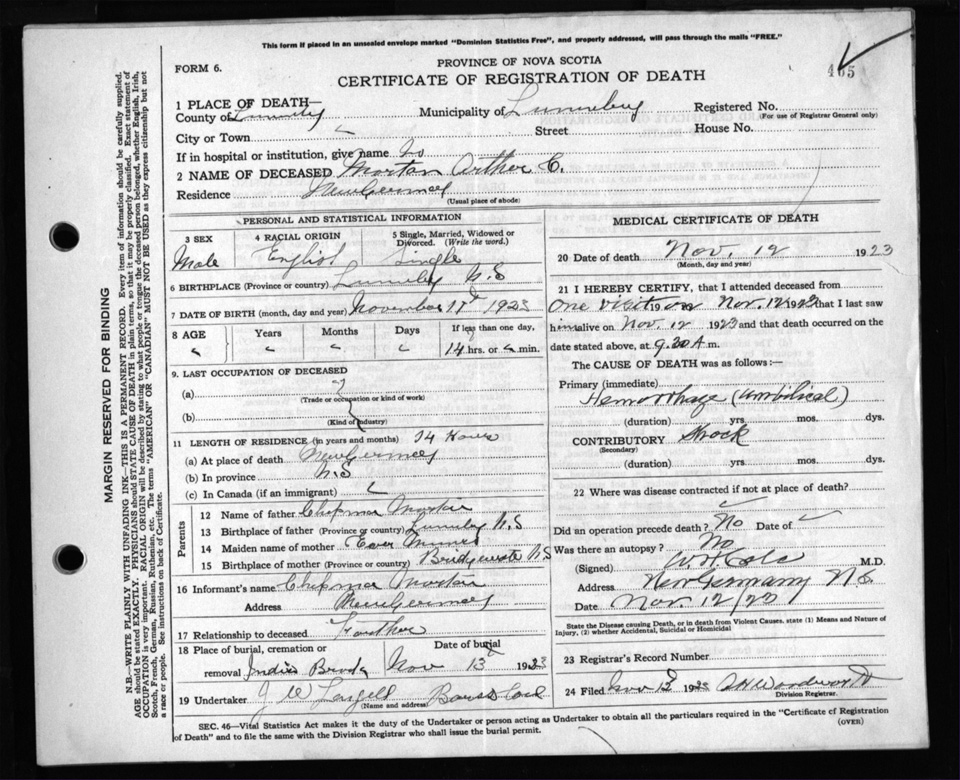 This form if placed in an unsealed envelope marked "Dominion Statistics Free", and properly addressed, will pass through the mails "FREE."
FORM 6.
PROVINCE OF NOVA SCOTIA
CERTIFICATE OF REGISTRATION OF DEATH
465
MARGIN RESERVED FOR BINDING
N.B.—WRITE PLAINLY WITH UNFADING INK—THIS IS A PERMANENT RECORD. Every item of information should be carefully supplied.
AGE should be stated EXACTLY. PHYSICIANS should STATE CAUSE OF DEATH in plain terms, so that it may be properly classified. Exact statement of
OCCUPATION is very important. RACIAL ORIGIN will be described by stating to what people or tongue the deceased person belonged, whether English, Irish,
Scotch, French, German, Russian, Ruthenian, etc. The terms "AMERICAN" OR "CANADIAN" MUST NOT BE USED as they express citizenship but not
a race or people. See instructions on back of Certificate.
1 PLACE OF DEATH—
County of Municipality of Lunenburg Registered No.
(For use of Registrar General only)
City or Town Street House No.
If in hospital or institution, give name No
2 NAME OF DECEASED Arther C.
Residence New Germany
(Usual place of abode)
PERSONAL AND STATISTICAL INFORMATION
3 SEX
Male
4 RACIAL ORIGIN
English
5 Single, Married, Widowed or
Divorced. (Write the word.)
Single
6 BIRTHPLACE (Province or country) N.S
7 DATE OF BIRTH (month, day and year) November 11 1923
8 AGE Years Months Days If less than one day,
14 hrs. or min.
9. LAST OCCUPATION OF DECEASED
(a)
(Trade or occupation or kind of work)
(b)
(Kind of industry)
11 LENGTH OF RESIDENCE (in years and months) 14 Hours
(a) At place of death New Germany
(b) In province N.S
(c) In Canada (if an immigrant)
Parents
12 Name of father
13 Birthplace of father (Province or country) N.S
14 Maiden name of mother
15 Birthplace of mother (Province or country) N.S
16 Informant's name
Address New Germany
17 Relationship to deceased
18 Place of burial, cremation or
removal
Date of burial
Nov 13 1923
19 Undertaker J W
(Name and address)
MEDICAL CERTIFICATE OF DEATH
20 Date of death Nov. 12 1923
(Month, day and year)
21 I HEREBY CERTIFY, that I attended deceased from
One visit on Nov. 12 1923 that I last saw
him alive on Nov. 12 1923 and that death occurred on the
date stated above, at 9.30 A m.
The CAUSE OF DEATH was as follows:—
Primary (immediate)
Hemorrhage (Umbilical)
(duration) yrs. mos. dys.
CONTRIBUTORY Shock
(Secondary)
(duration) yrs. mos. dys.
22 Where was disease contracted if not at place of death?
Did an operation precede death? No Date of
Was there an autopsy? No
(Signed) W.H. Cole M.D.
Address New Germany N.S.
Date Nov. 12/23
State the Disease causing Death, or in death from Violent Causes, state (1) Means and Nature of
Injury, (2) whether Accidental, Suicidal or Homicidal
23 Registrar's Record Number
24 Filed 192
Division Registrar.
SEC. 46—Vital Statistics Act makes it the duty of the Undertaker or person acting as Undertaker to obtain all the particulars required in the "Certificate of Registration
of Death" and to file the same with the Division Registrar who shall issue the burial permit. (OVER)